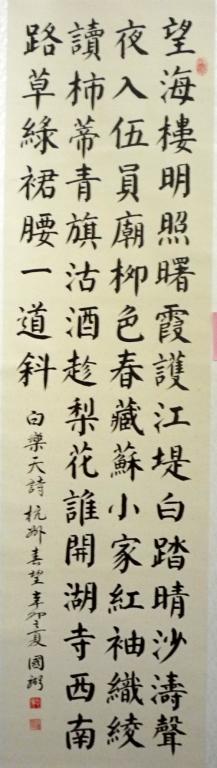 望海樓明照曙霞護江堤白踏晴沙濤聲
夜入伍員廟柳色春藏蘇小家紅袖織綾
讀柿蒂青旗沽酒趁梨花誰開湖寺西南
路草綠裙腰一道斜
白樂天詩杭州春望辛卯之夏國